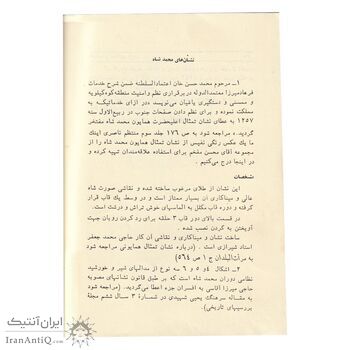 نشان‌های محمد شاه
۱ــ مرحوم محمد حسن خان اعتمادالسلطنه ضمن شرح خدمات
فرهادمیرزا معتمدالدوله در برقراری نظم و امنیت منطقه کوه کیلویه
و ممسنی و دستگیری یاغیان می‌نویسد «در ازای خدماتیکه به
مملکت نموده و برای نظم دادن صفحات جنوب در ربیع‌الاول سنه
۱۲۵۷ به عطای نشان تمثال اعلیحضرت همایون محمد شاه مفتخر
گردید.» مراجعه شود به ص ۱۷۶ جلد سوم منتظم ناصری اینک
ما یك عکس رنگی نفیس از نشان تمثال همایون محمد شاه را از
مجموعه آقای محسن مفخم برای استفاده علاقه‌مندان تهیه کرده و
در اینجا درج می‌کنیم.
مشخصات
این نشان از طلای مرغوب ساخته شده و نقاشی صورت شاه
عالی و میناکاری آن بسیار ممتاز است و در وسط یك قاب قرار
گرفته و دوره قاب مکلل به الماسهای خوش تراش و درشت است.
در قسمت بالای دور قاب ۳ حلقه برای رد کردن روبان جهت
آویختن به گردن نصب شده.
ساخت نشان و میناکاری و نقاشی آن کار حاجی محمد جعفر
استاد شیرازی است. (درباره نشان تمثال همایونی مراجعه شود
به مرآت‌البلدان ج ۱ ص ۵۶۴)
۲ــ اشکال ۴و ۵ و ۶ سه نوع از مدالهای شیر و خورشید
نظامی دوران محمد شاه است که بر طبق قانون نشانهای مصوبه
حاجی میرزا آقاسی به افسران جزء اعطا می‌گردید. (مراجعه شود
به مقاله سرهنگ یحیی شهیدی در شمارهٔ ۳ سال ششم مجلهٔ
بررسیهای تاریخی).
ایران آنتیک
IranAntiQ.com